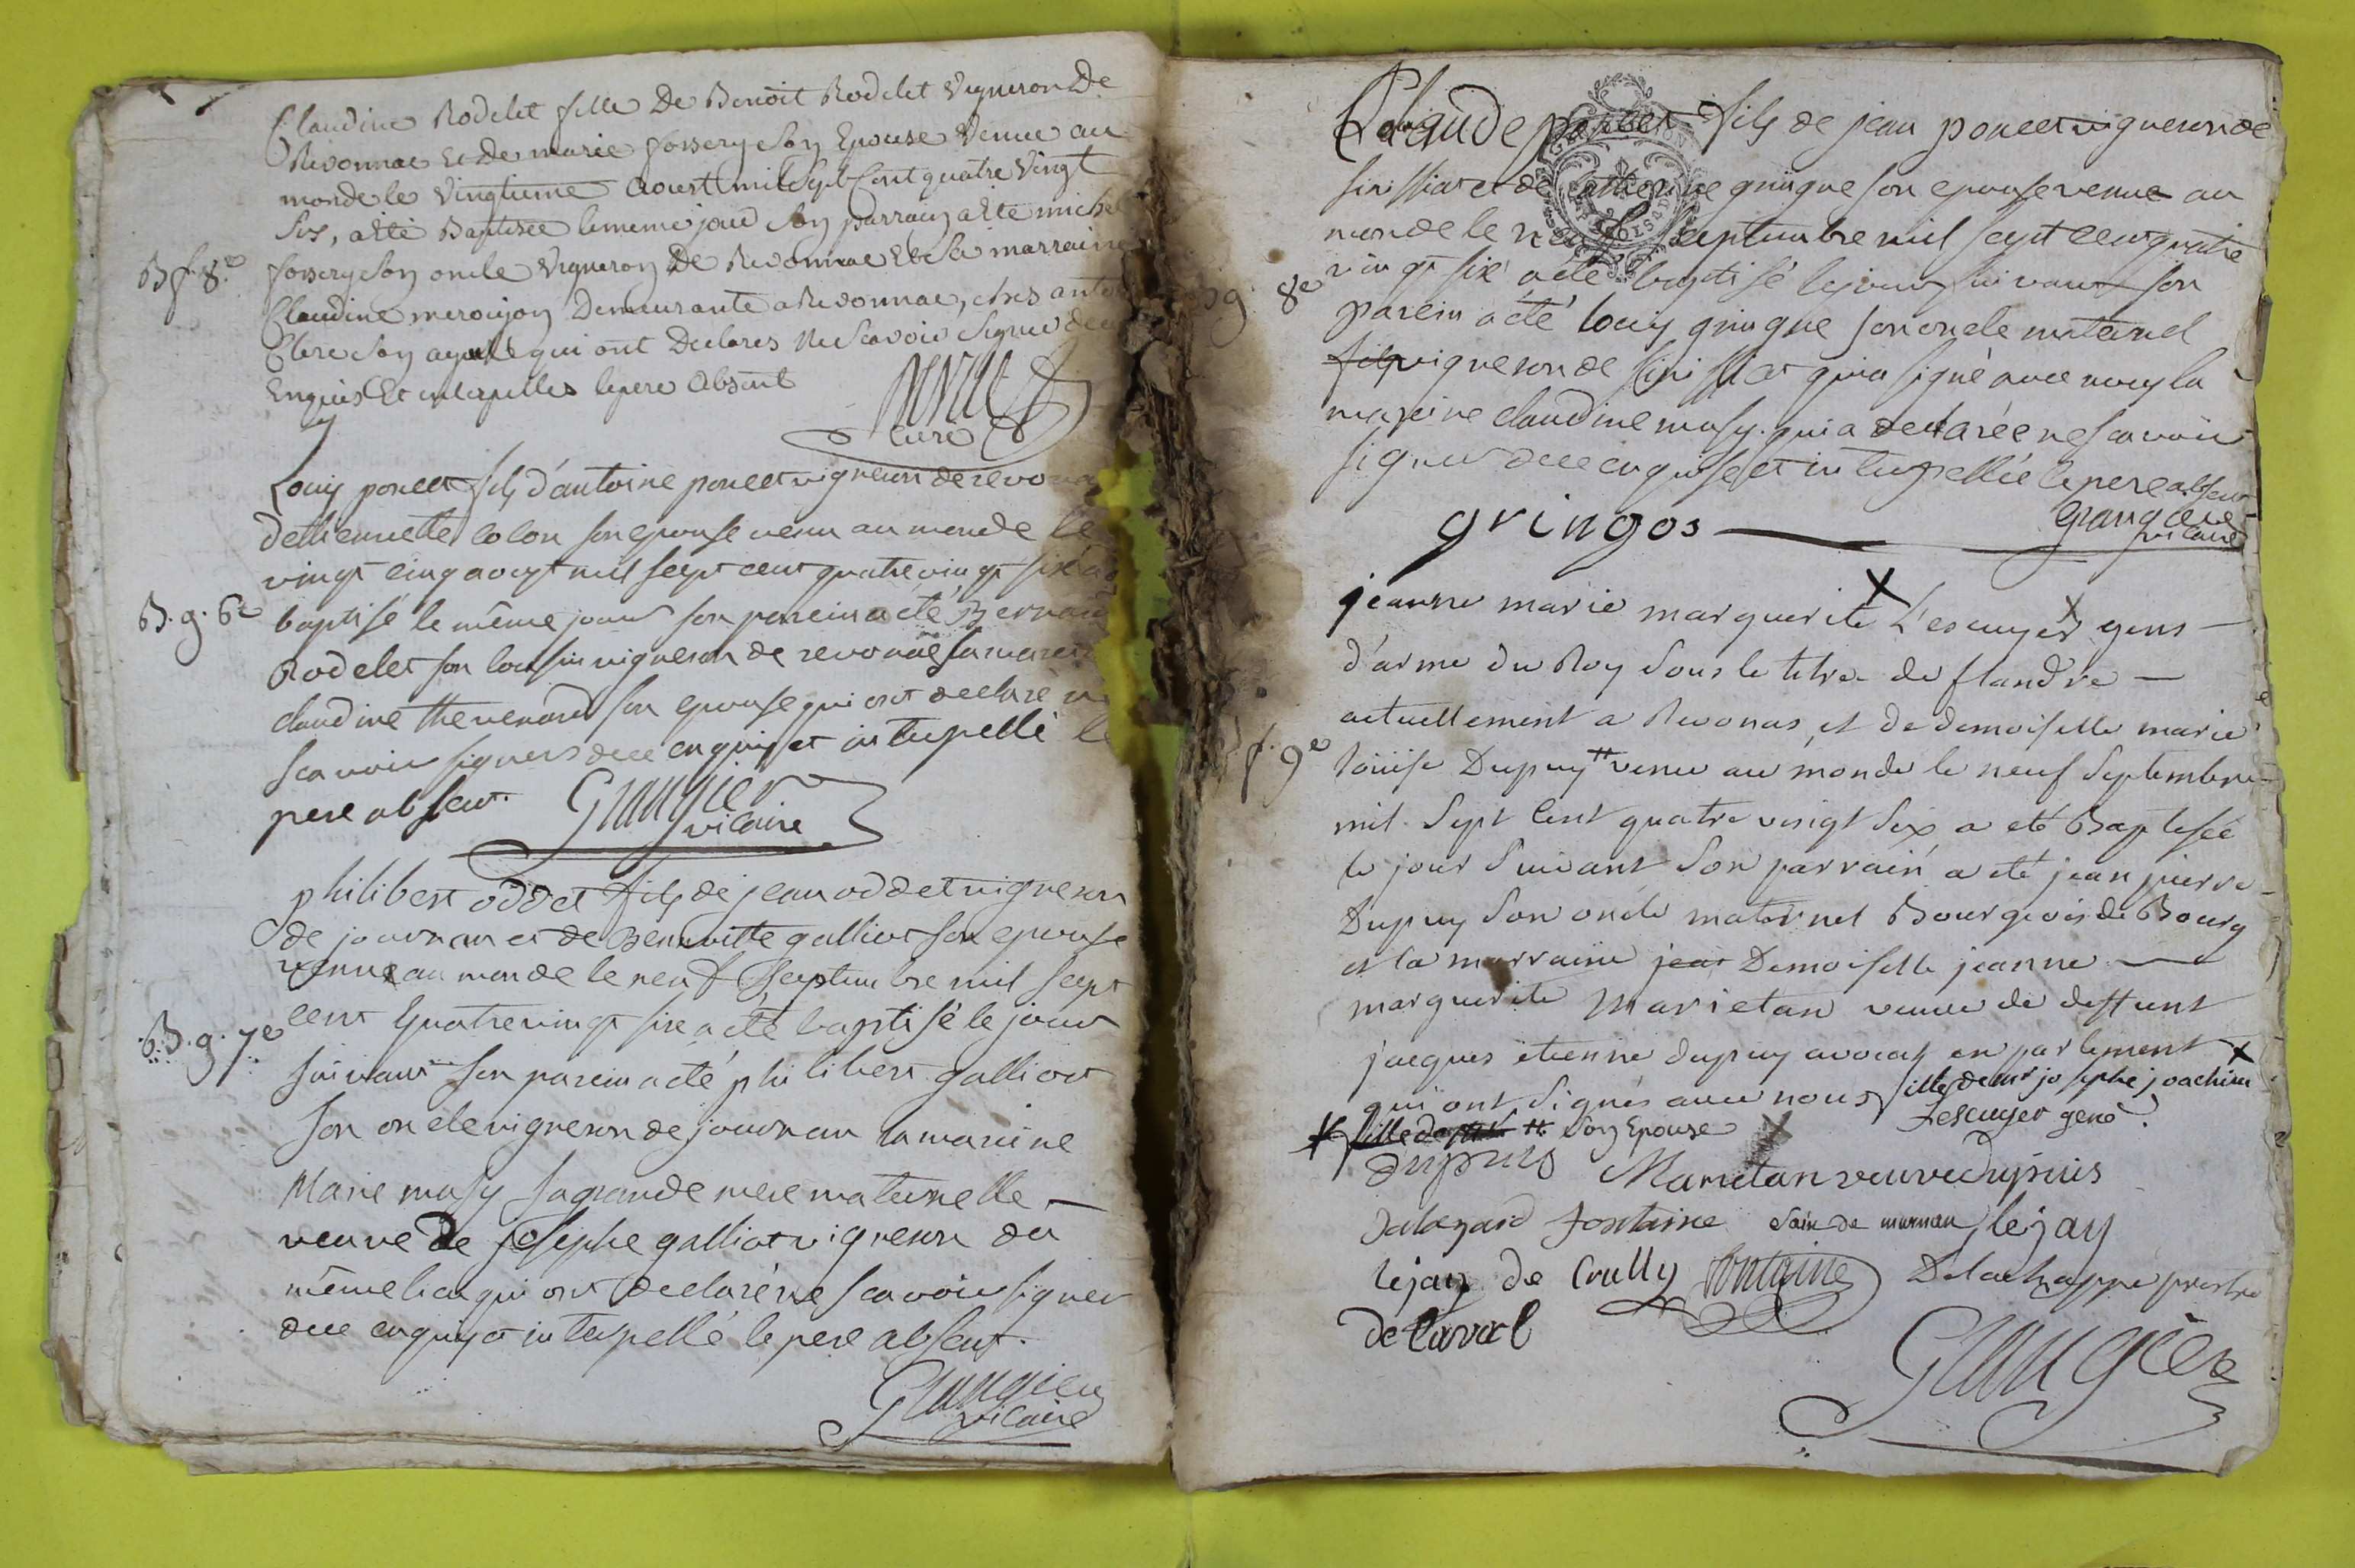 Claudine Rodelet fille De Benoit Rodelet Vigneron De
Revonnac Et De marie fossery son Epouse Venue au
monde le Vingtieme Aoust mil Sept Cent quatre Vingt
Six, a Eté Baptisée le meme jour son parrain a Eté michel
B f 8e
fossery son oncle Vigneron De Revonnac Et sa marraine
Claudine Demeurante a Revonnac, ches
son qui ont Declares Ne Scavoir Signer de ce
Enquis Et interpelles le pere absent
curé
Louis poncet fils d'antoine poncet vigneron de revona
d'ethiennette colon son epouse venu au monde le
vingt cinq aoust mil sept cent quatre vingt six a
B. g. 6e
baptisé le même jour son parein a été Bernard
Rodelet son cousin vigneron de revonas sa mareine
claudine thevenard son epouse qui ont declaré ne
scavoir signer de ce enquis et interpellé le
pere absent. Grangier
vicaire
philibert oddet fils de jean oddet vigneron
de journan et de Bennoitte galliot son epouse
venue au monde le neuf septembre mil sept
B. g. 7e
cent quatre vingt six a été baptisé le jour
suivant son parein a été philibert galliot
son oncle vigneron de journan la mareine
Marie masy sa grande mere maternelle
veuve de josephe galliot vigneron du
même lieu qui ont declaré ne scavoir signer
de ce enquis et interpellé le pere absent.
Grangier
vicaire
Claude poncet fils de jean poncet vigneron de
sinssiat et de catherine gringue son epouse venue au
monde le neuf septembre mil sept cent quatre
g 8e
vingt six a été baptisé le jour suivant son
parein a été louis gringue son oncle maternel
fils vigneron de sinissiat qui a signé avec nous la
mareine claudine masy qui a declarée ne scavoir
signer de ce enquise et interpellée le pere absent
gringos
Grangier
vicaire
jeanne marie marguerite X L'escuyer X gens
d'arme du Roy sous le titre de flandre
actuellement a Revonas, et de demoiselle marie
f. 9e
loüise Dupuy # venue au monde le neuf Septembre
mil Sept Cent quatre vingt Six a eté Baptisée
le jour Suivant Son parrain a eté jean pierre
Dupuy Son oncle maternel Bourgeois de Bourg
et la marraine jean Demoiselle jeanne
marguerite Marietan veuve de deffunt
jacques etienne dupuy avocat en parlement X
qui ont Signés avec nous fille de mr josephe joachim
Lescuyer
# fille de # Son Epouse X
dupuis Marietan veuve dupuis
fontaine de murnan, lejay
lejay de Crully fontaine Delachappe prestre
de laval
Grangier